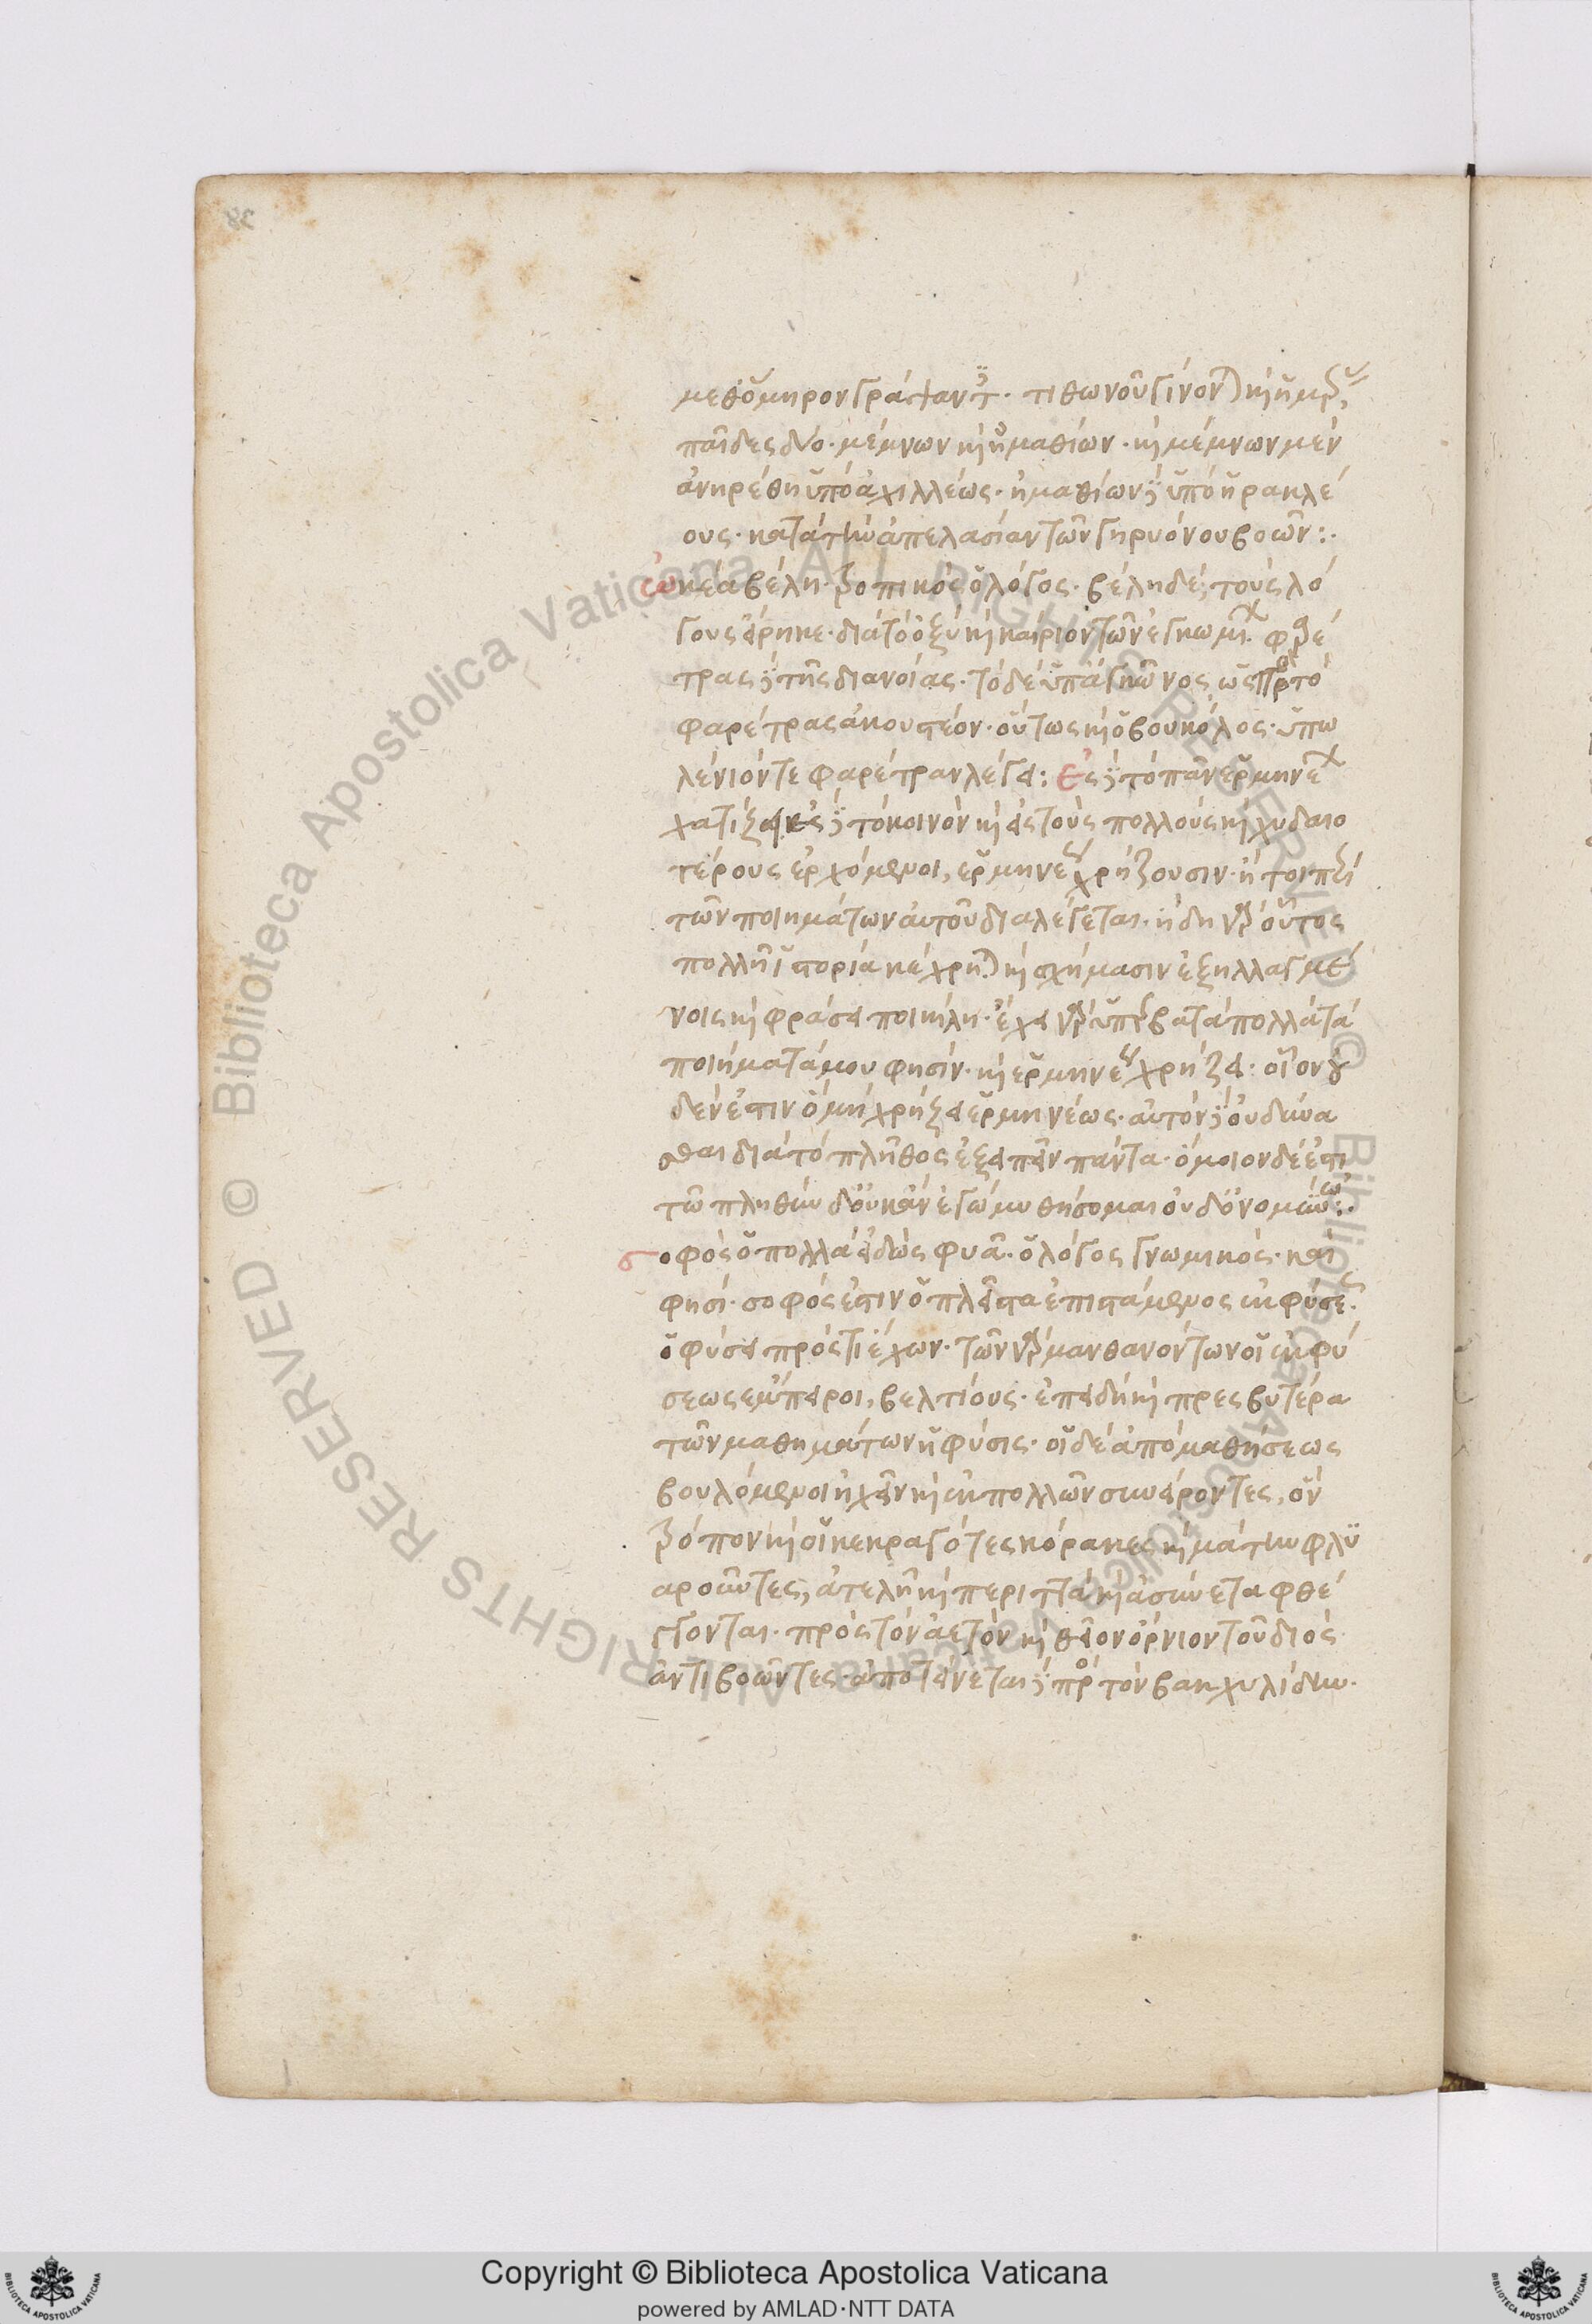 μεθ' ὅμηρον γράψαντ. τιθωνοῦ γίνονται καὶ ἡμέρας
παῖδες δύο· μέμνων καὶ ἠμαθίων· καὶ μέμνων μὲν
ἀνῃρέθη ὑπὸ ἀχιλλέως· ἠμαθίων δὲ ὑπὸ ἡρακλέ
ους· κατὰ τὴν ἀπελασίαν τῶν γηρυόνου βοῶν:·
ὠκέα βέλη· τροπικὸς ὁ λόγος· βέλη δὲ, τοὺς λό
γους εἴρηκε· διὰ τὸ ὀξὺ καὶ καίριον τῶν ἐγκωμι
τρας δὲ τῆς διανοίας· τὸ δὲ ὑπ' ἀγκῶνος ὡς πρὸς τὸ
φαρέτρας ἀκουστέον· οὕτως καὶ ὁ βουκόλος· ὑπω
λένιόν τε φαρέτραν λέγει: ἐς δὲ τὸ πὰν ἑρμηνέ
χατίζει· ἐς δὲ τὸ κοινὸν καὶ εἰς τοὺς πολλοὺς καὶ χυδαιο
τέρους ἐρχόμενοι, ἑρμηνέων χρῄζουσιν· ἤτοι περὶ
τῶν ποιημάτων αὐτοῦ διαλέγεται· ἤδη γὰρ οὗτος
πολλῇ ἱστορίᾳ κέχρηται καὶ σχήμασιν ἐξηλλαγμέ
νοις καὶ φράσει ποικίλῃ· ἔχει γὰρ ὑπερβατὰ πολλὰ τὰ
ποιήματά μου φησίν· καὶ ἑρμηνέων χρῄζει: οἷον οὐ
δέν ἐστιν ὃ μὴ χρῄζει ἑρμηνέως· αὐτὸν δὲ οὐ δύνα
σθαι διὰ τὸ πλῆθος ἐξειπεῖν πάντα· ὅμοιον δέ ἐστι
τῷ πληθὺν δ' οὐκ ἂν ἐγὼ μυθήσομαι οὐδ' ὀνομήνω:·
σοφὸς ὁ πολλὰ εἰδὼς φυᾷ· ὁ λόγος γνωμικός· καί
φησι· σοφός ἐστιν ὁ πλεῖστα ἐπιστάμενος ἐκ φύσεως·
ὁ φύσει πρός τι ἔχων· τῶν γὰρ μανθανόντων οἱ ἐκ φύ
σεως ἔμπειροι, βελτίους· ἐπειδὴ καὶ πρεσβυτέρα
τῶν μαθημάτων ἡ φύσις· οἱ δὲ ἀπὸ μαθήσεως
βουλόμενοι ἠχεῖν καὶ ἐκ πολλῶν συνείροντες, ὃν
τρόπον καὶ οἱ κεκραγότες κόρακες καὶ μάτην φλυ
αροῦντες, ἀτελῆ καὶ περιττὰ καὶ ἀσύνετα φθέ
γγονται· πρὸς τὸν ἀετὸν καὶ θεῖον ὄρνιον τοῦ διὸς
ἀντιβοῶντες· ἀποτείνεται δὲ πρὸς τὸν βακχυλίδην·
Copyright © Biblioteca Apostolica Vaticana
powered by AMLAD·NTT DATA